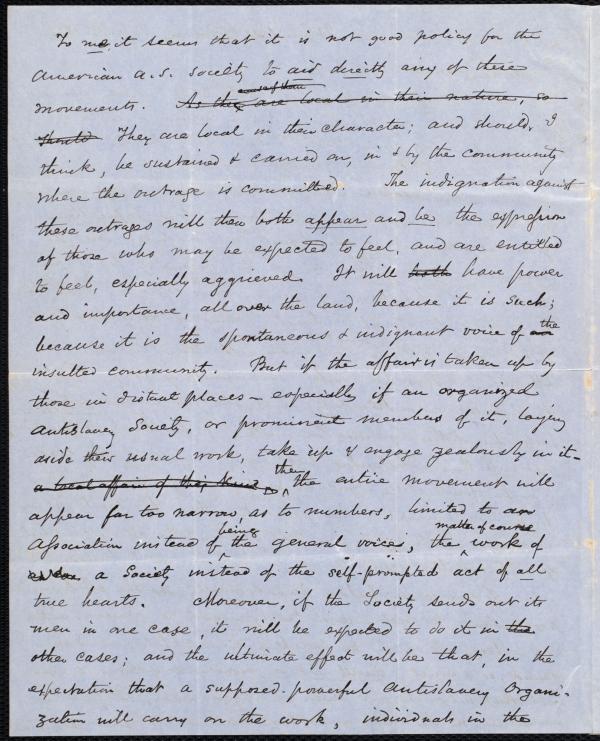 To me, it seems that it is not good policy for the
American A.S. Society to aid directly any of these
movements. As they are local in their nature, so
should They are local in their character; and should, I
think, be sustained & carried on, in & by the community
where the outrage is committed. The indignation against
these outrages will then both appear and be the expression
of those who may be expected to feel, and are entitled
to feel, especially aggrieved. It will both have power
and importance, all over the land, because it is such;
because it is the spontaneous & indignant voice of an the
insulted community. But if the affair is taken up by
those in distant places – especially if an organized
Antislavery Society, or prominent members of it, laying
aside their usual work, take up & engage zealously in it –
a local affair of this kind, then the entire movement will
appear far too narrow, as to numbers, limited to an
Association instead of being the general voices, the matter of course work of
a Society instead of the self-prompted act of all
true hearts. Moreover, if the Society sends out its
men in one case, it will be expected to do it in the
other cases; and the ultimate effect will be that, in the
expectation that a supposed-powerful Antislavery Organi-
zation will carry on the work, individuals in the